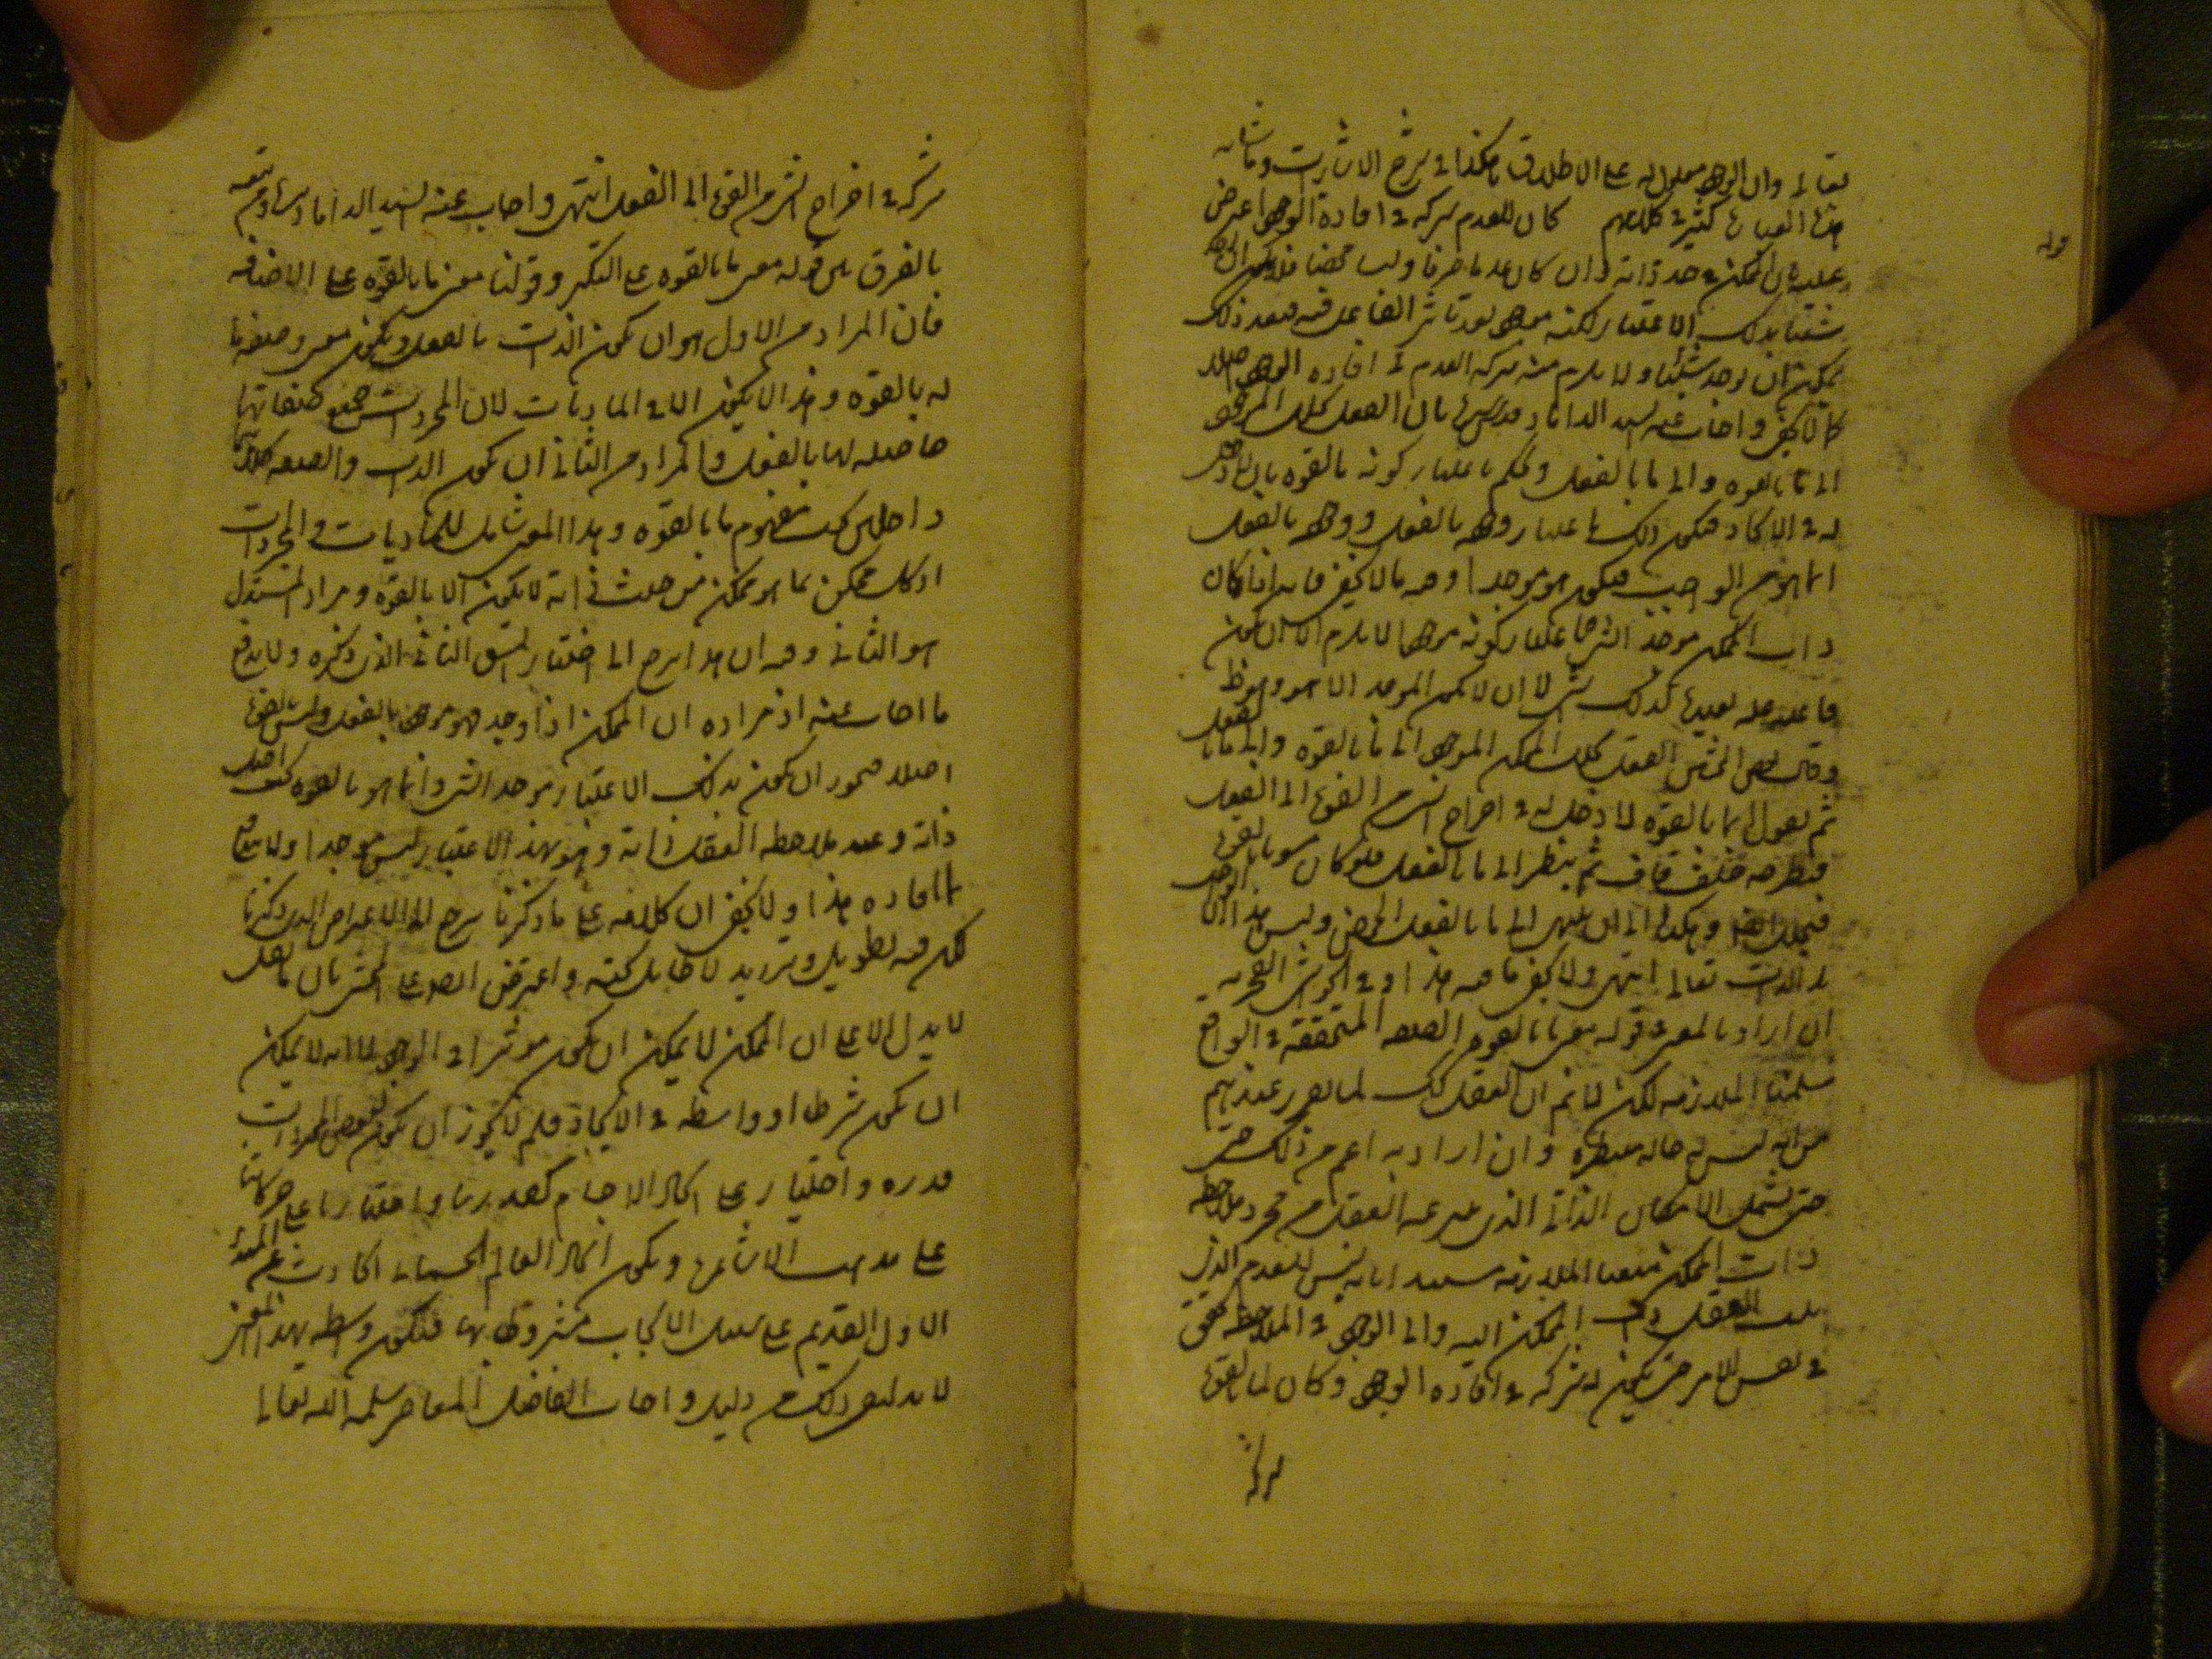 تعالى وان الوجود معلول له على الاطلاق هكذا في شرح الاشارات وامثاله
هذه العبارة كثيرة في كلامهم كان للعدم شركة في افادة الوجود اعترض
قوله
عليه بان الممكن في حد ذاته وان كان عدما صرفا وليسا محضا فلا يمكن ان يوجد
شيئا بذلك الاعتبار لكنه موجود بعد تاثير الفاعل فيه فبعد ذلك
يمكن ان يوجد شيئا ولا يلزم منه شركة العدم في افادة الوجود اصلا
كما لا يخفى واجاب عنه السيد الداماد قدس سره بان العقل يحلل الموجود
الى ما بالقوة والى ما بالفعل ويحكم باعتبار كونه بالقوة بان لا دخل
له في الايجاد فيكون ذلك باعتبار وجوده بالفعل ووجوده بالفعل
انما هو من الواجب فيكون هو موجدا وفيه ما لا يخفى فانه اذا كان
ذات الممكن موجد الشيء باعتبار كونه موجودا لا يلزم الا ان يكون
فاعليته بعيدها كذلك لا ان لا يكون الموجد الا هو وهو ظ
وقال بعض المحشين العقل يحلل الممكن الموجود الى ما بالقوة والى ما بالفعل
ثم نقول ان ما بالقوة لا دخل له في اخراج الشيء من القوة الى الفعل
فنطرحه خلف قاف ثم ننظر الى ما بالفعل فلو كان مشوبا بالقوة
فنحلل ايضا وهكذا الى ان ينتهي الى ما بالفعل المحض وليس هذا الا الواحد
بالذات تعالى انتهى ولا يخفى ما فيه هذا وفي الحواشي الفخرية
ان اراد بالمعنى في قوله معنى ما بالقوة الصفة المتحققة في الواقع
سلمنا الملازمة لكن لا نم ان العقل كك لما تقرر عندهم
من انه ليس له حالة منتظرة وان اراد به اعم من ذلك حتى
حتى يشمل الامكان الذاتي الذي ينتزعه العقل من مجرد ملاحظة
ذات الممكن منعنا الملازمة مستندا بانه ليس للعدم الذي
ينسب العقل ذات الممكن اليه والى الوجود في الملاحظة تحقق
في نفس الامر حتى يكون له شركة في افادة الوجود وكان لما بالقوة
شركة
شركة في اخراج الشيء من القوة الى الفعل انتهى واجاب عنه السيد الداماد قدس سره وتبعه
بالفرق بين قوله معنى ما بالقوة على التنكير وقولنا معنى ما بالقوة على الاضافة
فان المراد من الاول هو ان يكون الذات بالفعل ويكون معنى وصفة ما
له بالقوة وهذا لا يكون الا في الماديات لان المجردات جميع صفاتها
حاصلة لها بالفعل والمراد من الثاني ان يكون الذات والصفة كلاهما
داخلين تحت مفهوم ما بالقوة وهذا المعنى شامل للماديات والمجردات
اذ كل ممكن بما هو ممكن من حيث ذاته لا يكون الا بالقوة ومراد المستدل
هو الثاني وفيه ان هذا يرجع الى اختيار الشق الثاني الذي ذكره ولا يدفع
ما اجاب عنه اذ مراده ان الممكن اذا وجد فهو موجود بالفعل وليس بالقوة
اصلا فيجوز ان يكون بذلك الاعتبار موجد الشيء وانما هو بالقوة بحسب اصل
ذاته وعند ملاحظة العقل ذاته وهو بهذا الاعتبار ليس موجدا ولا ينافي
لما افاده هذا ولا يخفى ان كلامه على ما ذكرنا يرجع الى الاعتراض الذي ذكرنا
لكن فيه تطويل وترديد لا طائل تحته واعترض ايضا على المحشي بان ما نقل
لا يدل الا على ان الممكن لا يمكن ان يكون مؤثرا في الوجود لا انه لا يمكن
ان يكون شرطا او واسطة في الايجاد فلم لا يجوز ان يكون لبعض المجردات
قدرة واختيار على ايجاد الاجسام كقدرتنا واختيارنا على حركاتنا
على مذهب الاشاعرة ويكون ايجاد العالم الجسماني الحادث عن المبدء
الاول القديم على سبيل الايجاب مشروطا بها فيكون واسطة بهذا المعنى
لا بد لنفي ذلك من دليل واجاب الفاضل المعاصر سلمه الله تعالى